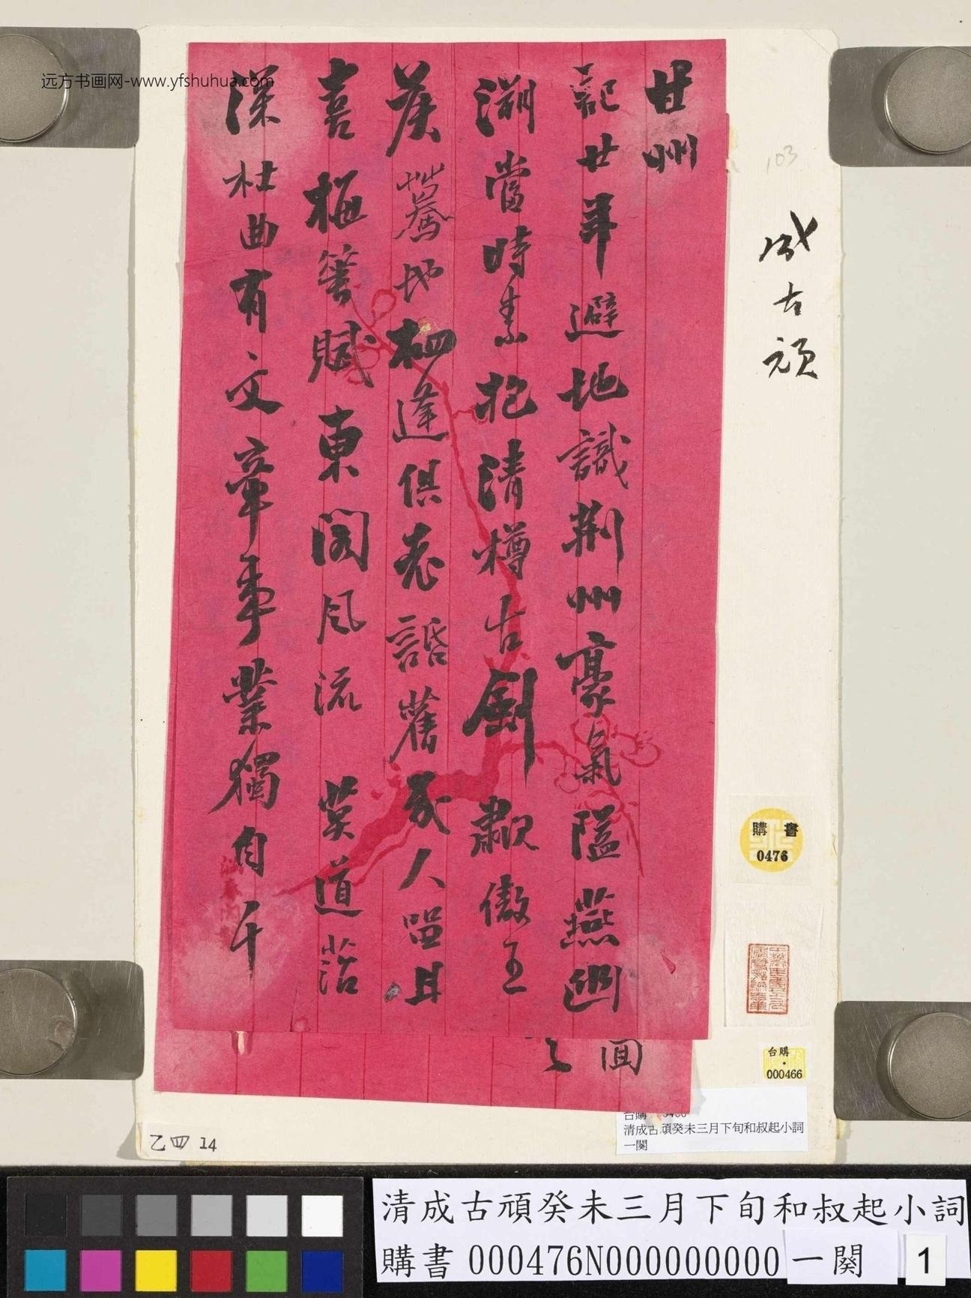 远方书画网-www.yfshuhua.com
甘州
記廿年避地識荆州豪氣隘燕幽
溯當時素抱清樽古劍歗傲王
矦驀地相逢俱老話舊友人留且
喜梅
賦東閣風流莫道
深杜曲有文章事業獨自千
面
103
成古頑
購書
0476
台購
000466
清成古頑癸未三月下旬和叔起小詞
一闋
乙四14
清成古頑癸未三月下旬和叔起小詞
購書000476N000000000一闋
1